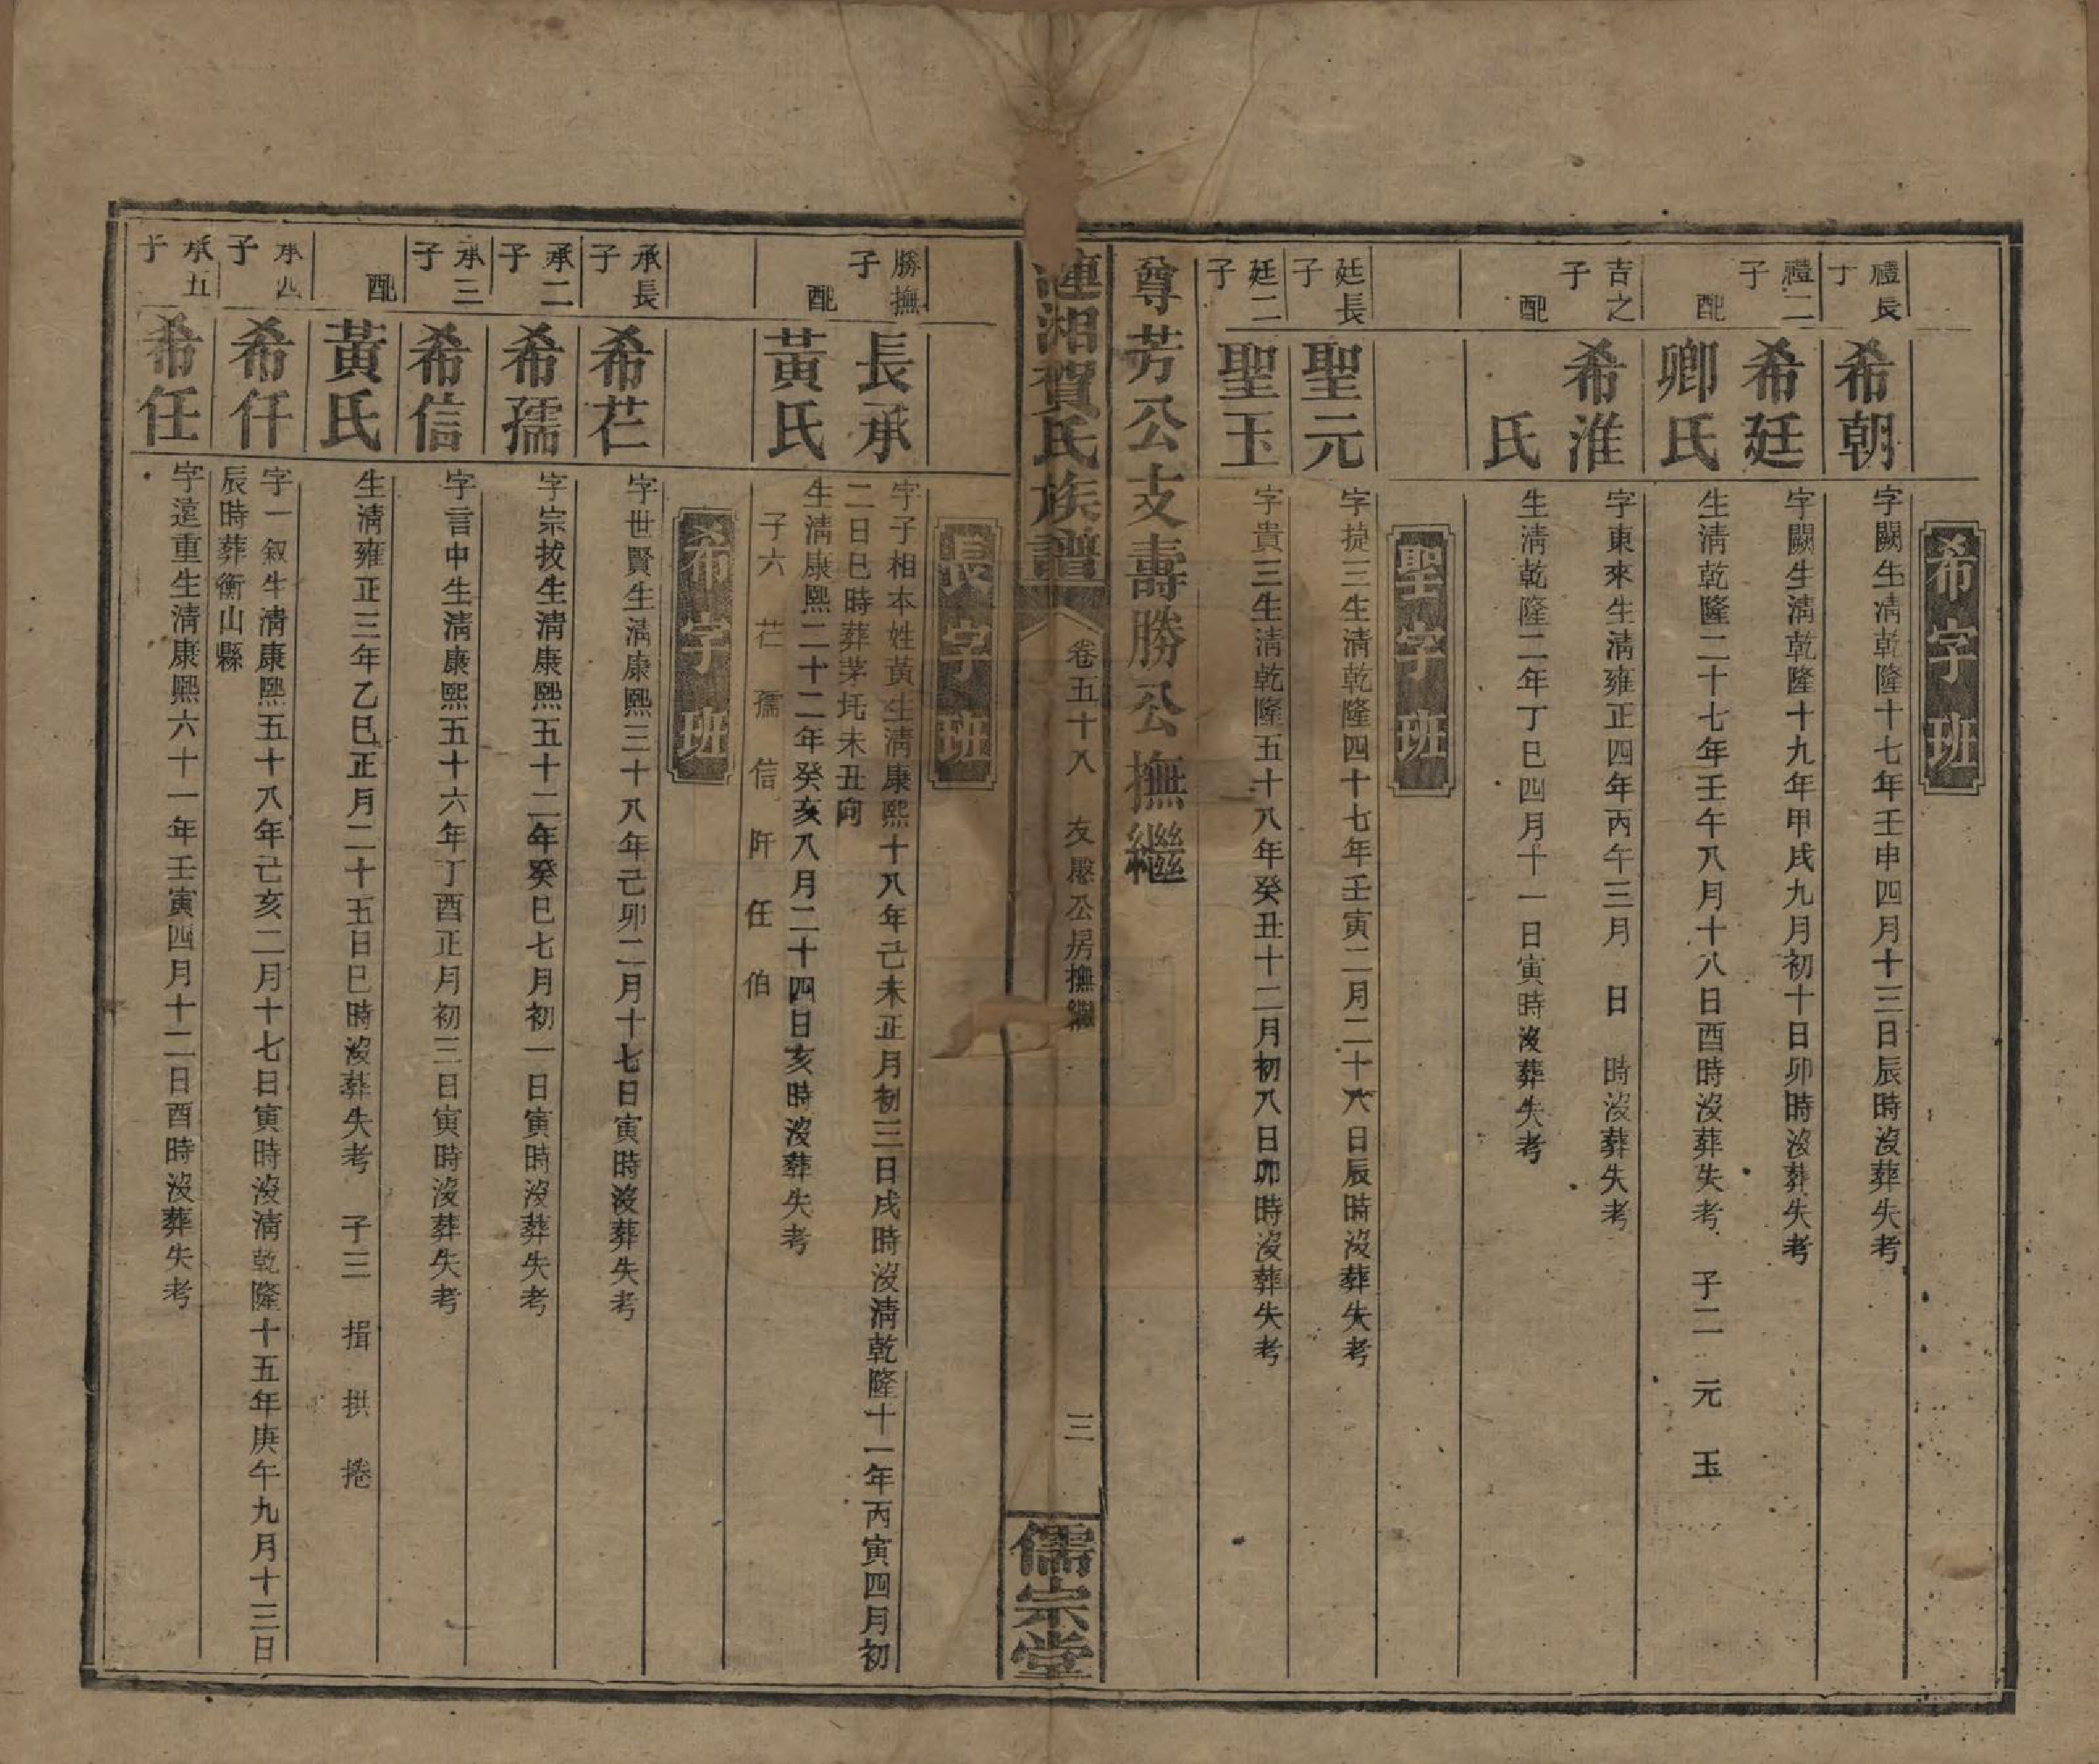 希字班
禮長子
希朝
字闕生清乾隆十七年壬申四月十三日辰時沒葬失考
禮二子
希廷
字闕生清乾隆十九年甲戌九月初十日卯時沒葬失考
配
卿氏
生清乾隆二十七年壬午八月十八日酉時沒葬失考 子二 元 玉
吉之子
希淮
字東來生清雍正四年丙午三月 日 時沒葬失考
配
氏
生清乾隆二年丁巳四月十一日寅時沒葬失考
聖字班
廷長子
聖元
字捷三生清乾隆四十七年壬寅二月二十六日辰時沒葬失考
廷二子
聖玉
字貴三生清乾隆五十八年癸丑十二月初八日卯時沒葬失考
尊芳公支壽勝公撫繼
漣湘賀氏族譜
卷五十八 友愍公房撫繼
三
儒宗堂
長字班
勝撫子
長承
字子相本姓黃生清康熙十八年己未正月初三日戌時沒清乾隆十一年丙寅四月初
二日巳時葬茅圫未丑向
配
黃氏
生清康熙二十二年癸亥八月二十四日亥時沒葬失考
子六 芢 孺 信 阡 任 伯
希字班
承長子
希芢
字世賢生清康熙三十八年己卯二月十七日寅時沒葬失考
承二子
希孺
字宗拔生清康熙五十二年癸巳七月初一日寅時沒葬失考
承三子
希信
字言中生清康熙五十六年丁酉正月初三日寅時沒葬失考
配
黃氏
生清雍正三年乙巳正月二十五日巳時沒葬失考 子三 揖 拱 捲
承四子
希仟
字一叙生清康熙五十八年己亥二月十七日寅時沒清乾隆十五年庚午九月十三日
辰時葬衡山縣
承五子
希任
字遠重生清康熙六十一年壬寅四月十二日酉時沒葬失考